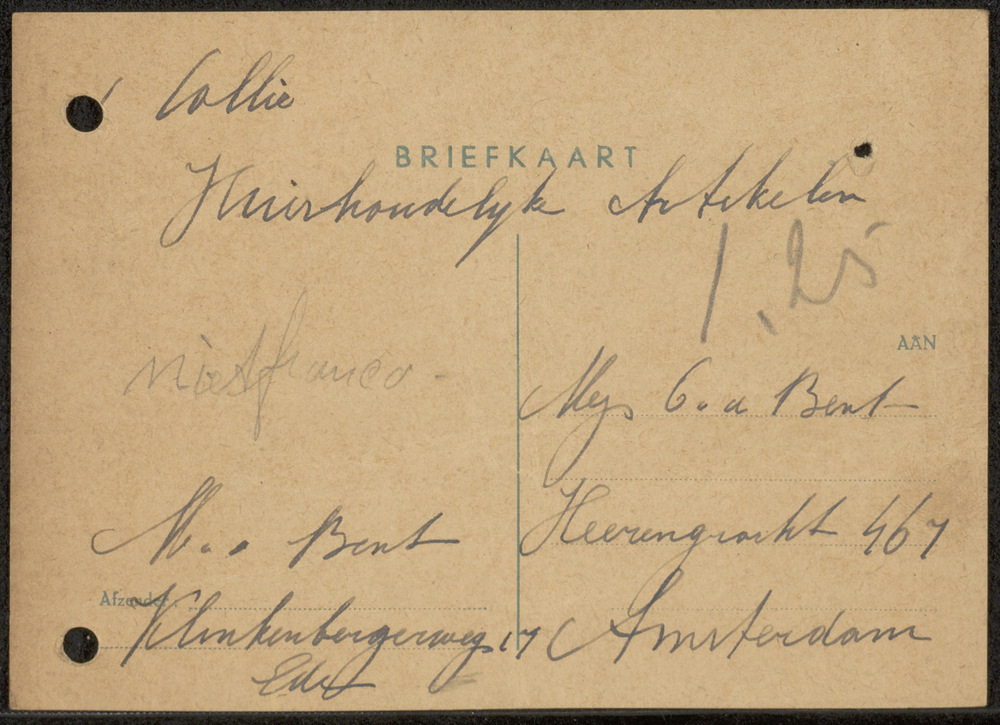 Collie
BRIEFKAART
Huishoudelyk Artikelen
1,25
niet franco -
AAN
Mej. G. v d Bent
Heerengracht 467
Amsterdam
M. v d Bent
Afzender:
Klinkenbergerweg 17
Ede